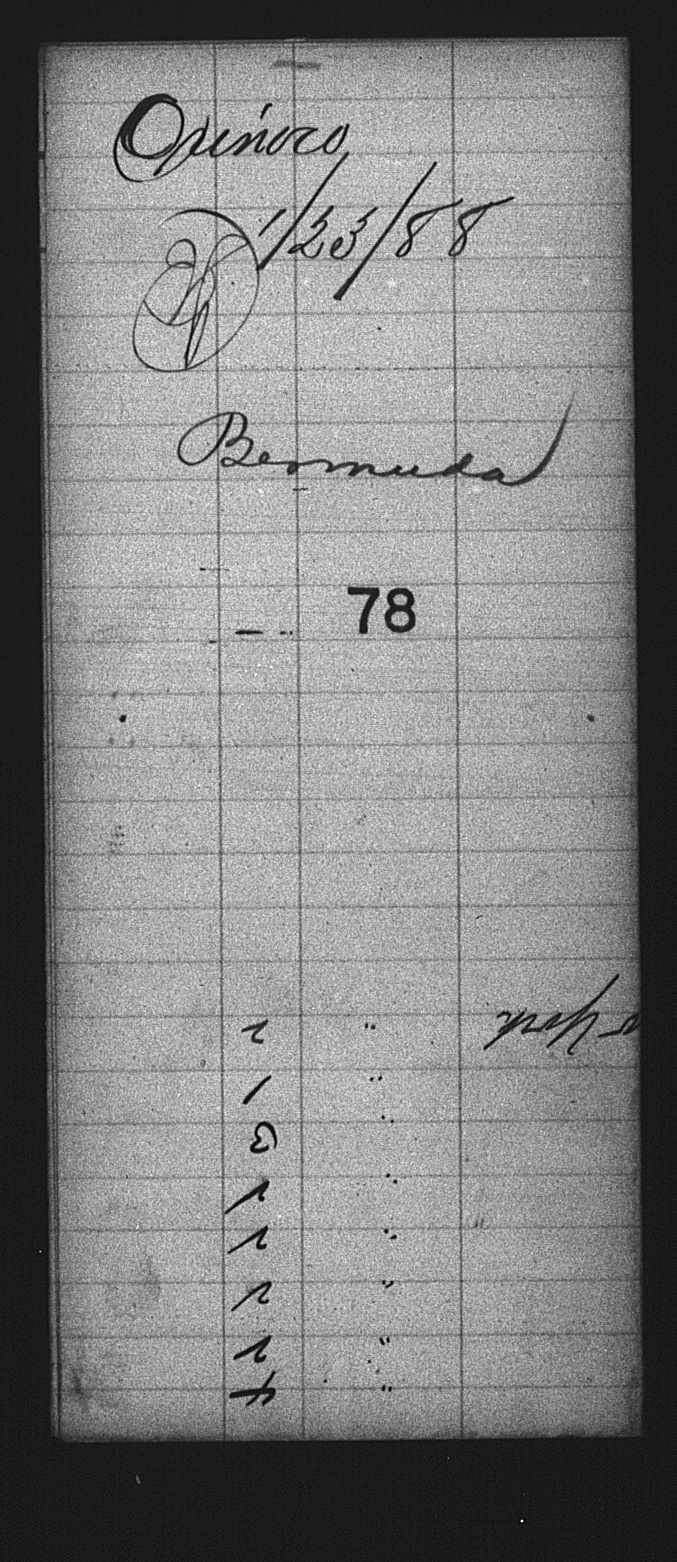 Orinoco
1/23/88
Bermuda
78
York "
2
1 "
3 "
1 "
2 "
2 "
2 "
4 "